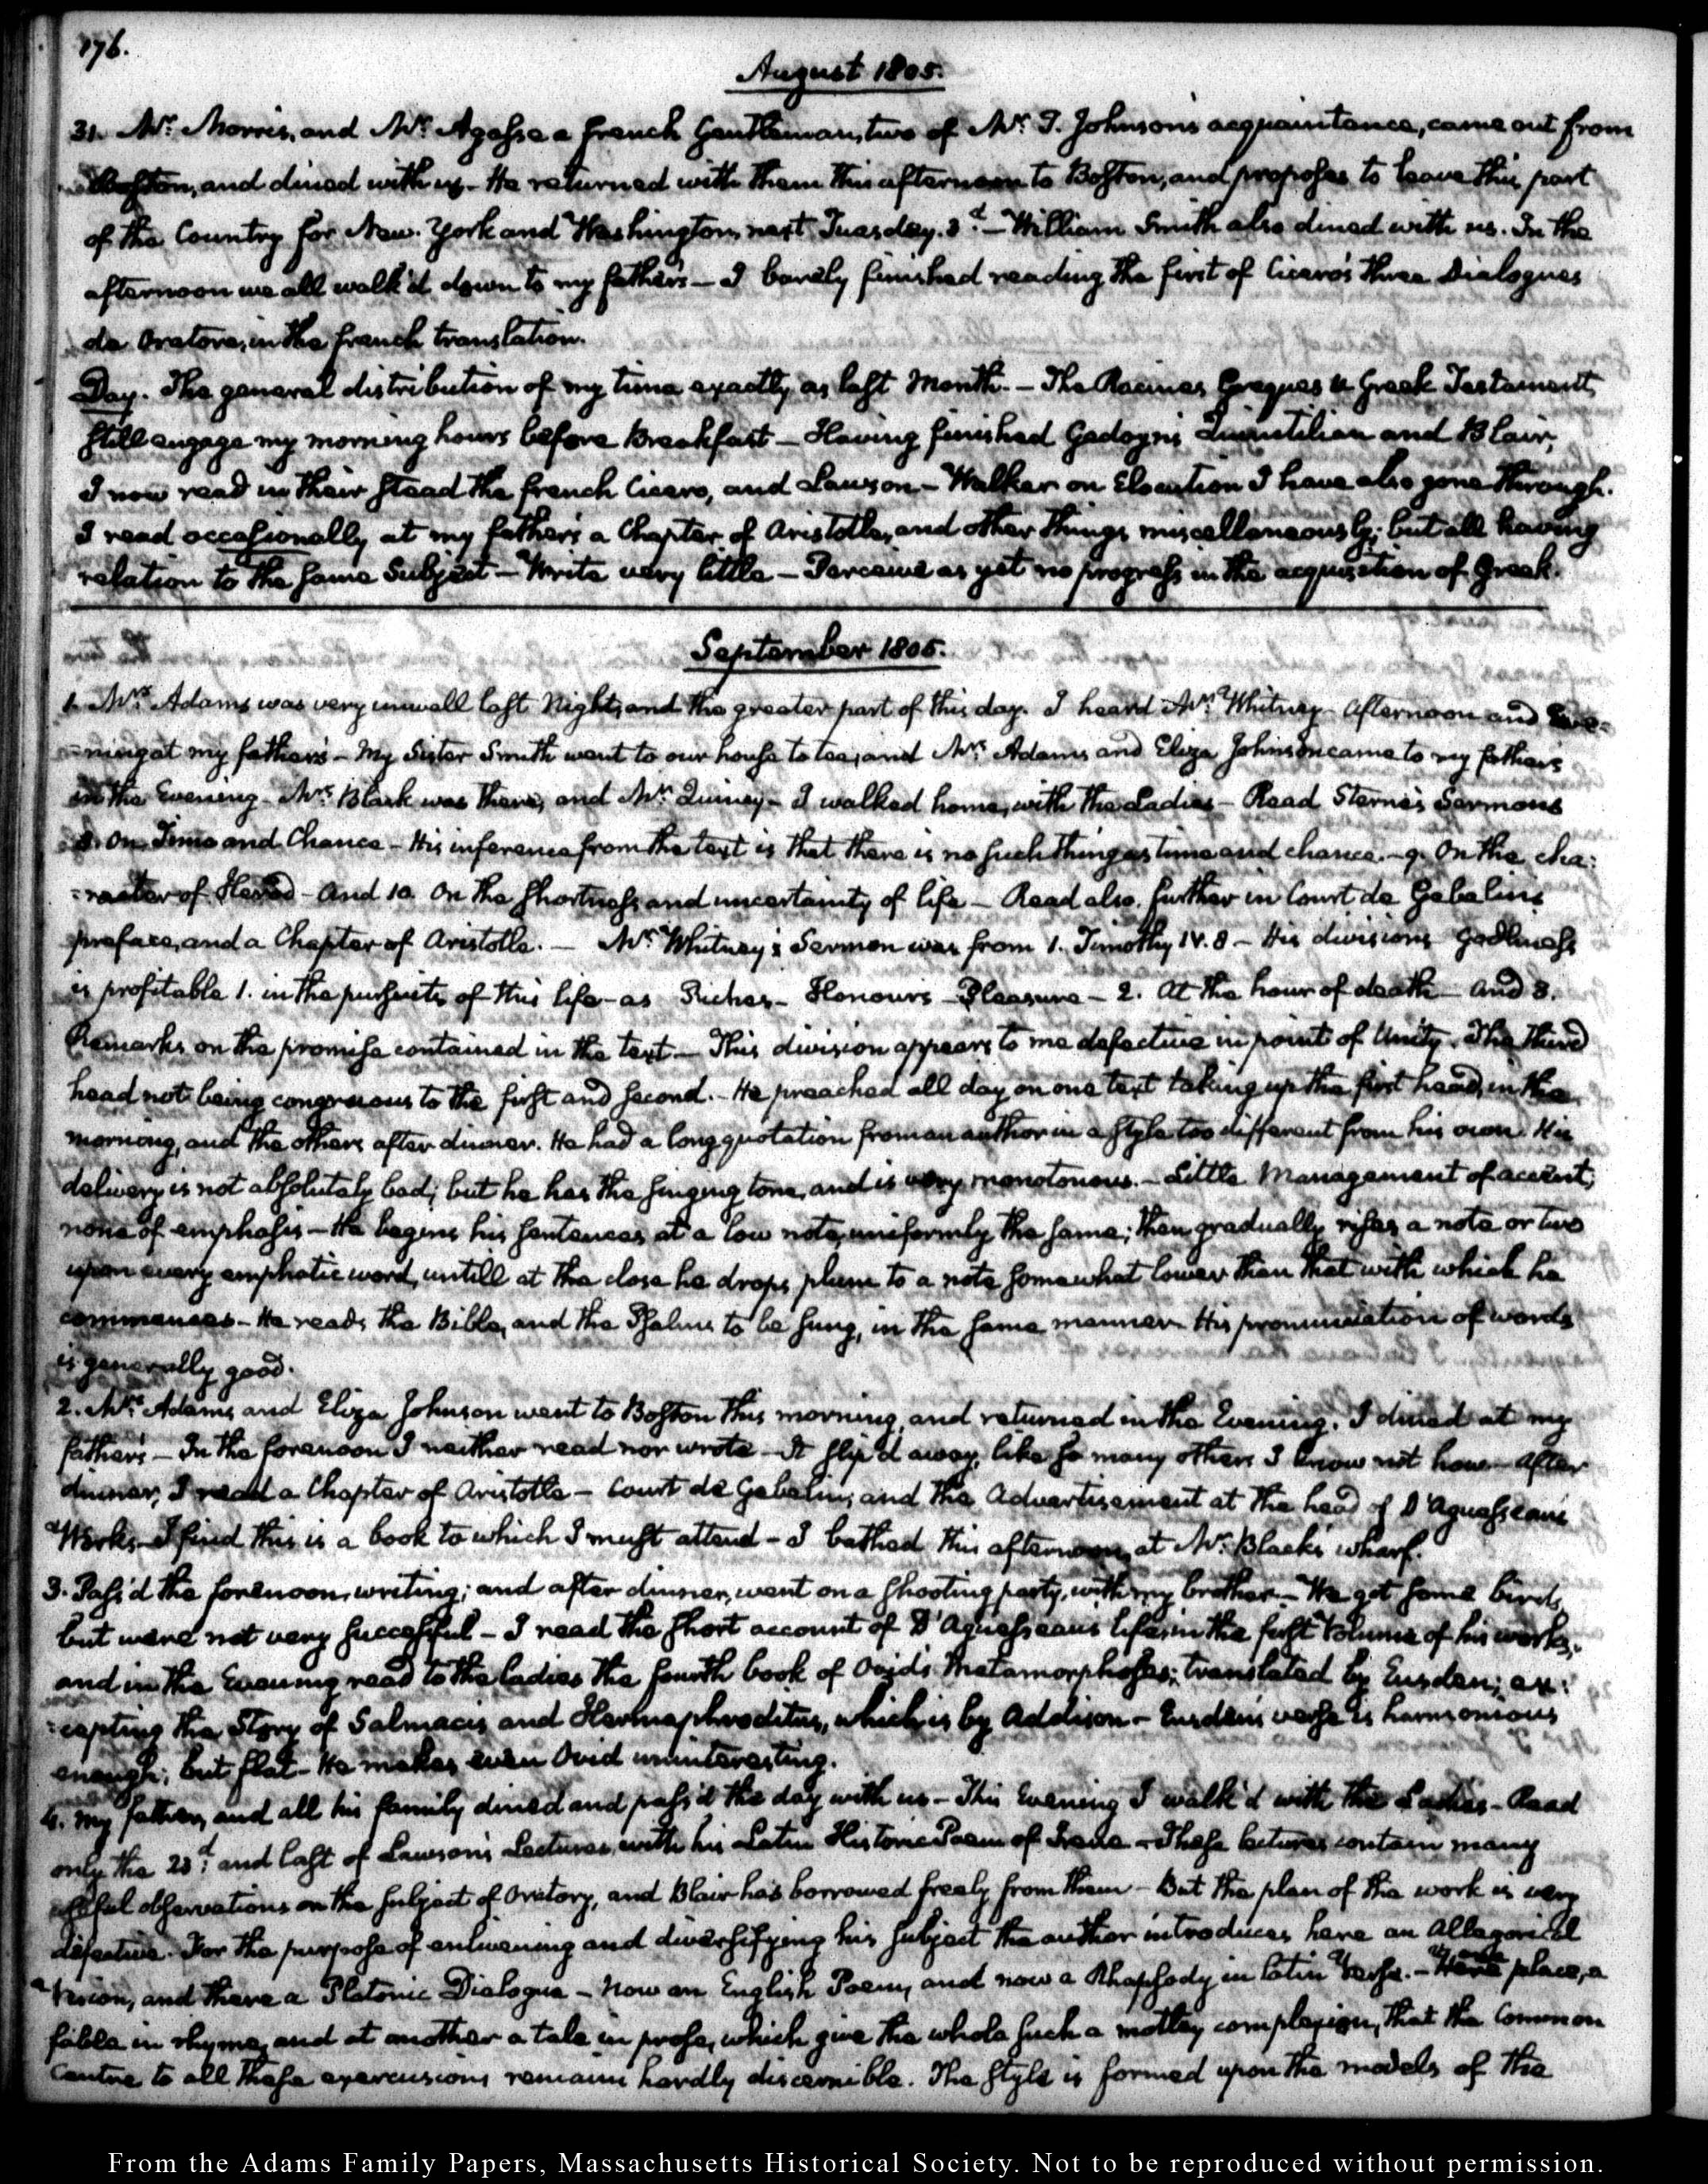 176.
August 1805.
31. Mr. Morris, and Mr. Agasse a french Gentleman, two of Mr. T. Johnson's acquaintance, came out from
Boston, and dined with us. He returned with them this afternoon to Boston, and proposes to leave this part
of the Country for New-York and Washington, next Tuesday. 3d. — William Smith also dined with us. In the
afternoon we all walk'd down to my father's — I barely finished reading the first of Cicero's three Dialogues
de Oratore, in the french translation.
Day. The general distribution of my time exactly as last Month. — The Racines Grecques & Greek Testament,
still engage my morning hours before Breakfast — Having finished Gedoyn's Quinctilian and Blair,
I now read in their stead the french Cicero, and Lawson — Walker on Elocution I have also gone through.
I read occasionally at my father's a Chapter of Aristotle, and other things miscellaneously; but all having
relation to the same Subject — Write very little — Perceive as yet no progress in the acquisition of Greek.
September 1805.
1. Mrs. Adams was very unwell last Night, and the greater part of this day. I heard Mr. Whitney. Afternoon and Eve=
=ning at my father's — My Sister Smith went to our house to tea, and Mrs. Adams and Eliza Johnson came to my father's
in the Evening. Mrs. Black was there, and Mr. Quincy — I walked home, with the Ladies — Read Sterne's Sermons
8. On Time and Chance — His inference from the text is that there is no such thing as time and chance. — 9. On the cha:
:racter of Herod — And 10. On the shortness and uncertainty of life — Read also, further in Court de Gebelin's
preface, and a Chapter of Aristotle. — Mr. Whitney's Sermon was from 1. Timothy IV. 8 — His divisions Godliness
is profitable 1. in the pursuits of this life — as Riches — Honours — Pleasure — 2. At the hour of death — And 3.
Remarks on the promise contained in the text — This division appears to me defective in point of Unity. The third
head not being congruous to the first and second. — He preached all day on one text taking up the first head, in the
morning, and the others after dinner. He had a long quotation from an author in a style too different from his own. His
delivery is not absolutely bad; but he has the singing tone, and is very monotonous. — Little Management of accent;
none of emphasis — He begins his sentences at a low note, uniformly the same; then gradually rises a note or two
upon every emphatic word, untill at the close he drops plum to a note somewhat lower than that with which he
commences — He reads the Bible, and the Psalms to be sung, in the same manner. His pronunciation of words
is generally good.
2. Mrs. Adams and Eliza Johnson went to Boston this morning, and returned in the Evening. I dined at my
father's — In the forenoon I neither read nor wrote — It slip'd away, like so many others I know not how — After
dinner, I read a Chapter of Aristotle — Court de Gebelin, and the Advertisement at the head of D'Aguesseau's
Works — I find this is a book to which I must attend — I bathed this afternoon, at Mr. Black's wharf.
3. Pass'd the forenoon, writing; and after dinner, went on a shooting party, with my brother — We got some birds,
but were not very successful — I read the short account of D'Aguesseau's life, in the first Volume of his works,
and in the Evening read to the ladies the fourth book of Ovid's Metamorphoses; translated by Eusden; ex:
:cepting the Story of Salmacis and Hermaphroditus, which is by Addison — Eusden's verse is harmonious
enough; but flat — He makes even Ovid uninteresting.
4. My father, and all his family dined and pass'd the day with us — This Evening I walk'd with the Ladies — Read
only the 23d. and last of Lawson's Lectures, with his Latin Historic Poem of Irene — These lectures contain many
useful observations on the subject of Oratory, and Blair has borrowed freely from them — But the plan of the work is very
defective. For the purpose of enlivening and diversifying his subject the author introduces here an Allegorical
Vision, and there a Platonic Dialogue — Now an English Poem, and now a Rhapsody in latin Verse. — place, a
fable in rhyme, and at another a tale in prose, which give the whole such a motley complexion, that the Common
Centre to all these excursions remains hardly discernible. The style is formed upon the models of the
From the Adams Family Papers, Massachusetts Historical Society. Not to be reproduced without permission.